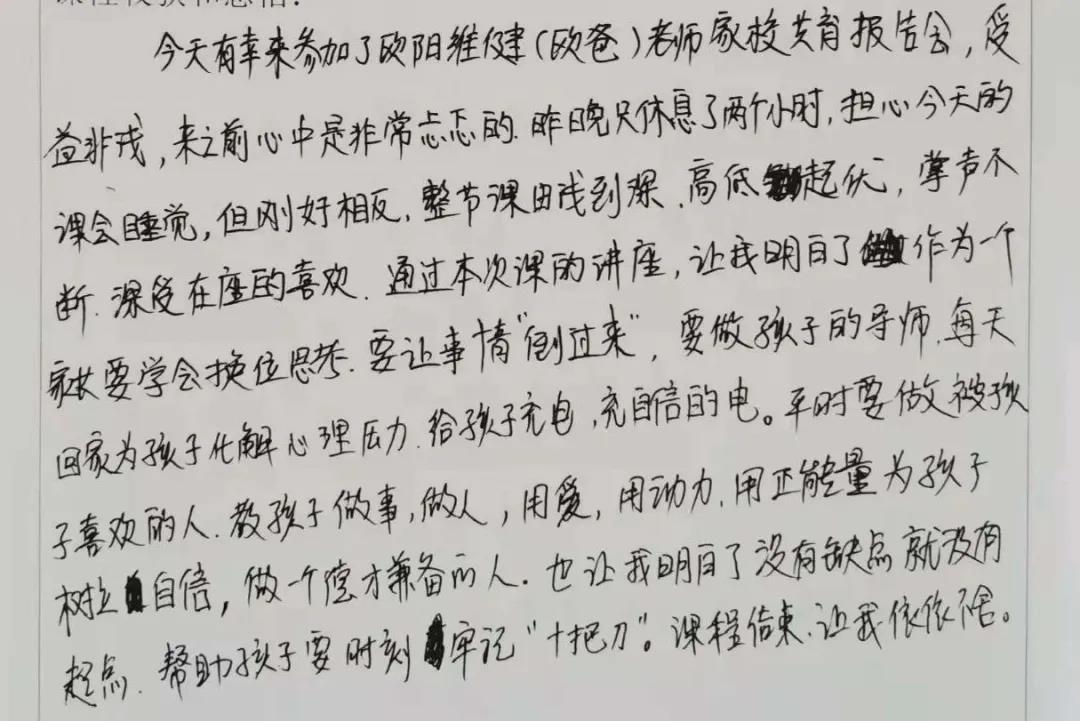 课程收获和感悟:
今天有幸来参加了欧阳维健(欧爸)老师家校共育报告会,受
益非浅,来之前心中是非常忐忑的.昨晚只休息了两个小时,担心今天的
课会睡觉,但刚好相反,整节课由浅到深.高低起伏,掌声不
断.深受在座的喜欢.通过本次课的讲座,让我明白了作为一个
家长要学会换位思考.要让事情"倒过来",要做孩子的导师.每天
回家为孩子化解心理压力.给孩子充电,充自信的电。平时要做被孩
子喜欢的人.教孩子做事,做人,用爱,用动力.用正能量为孩子
树立自信,做一个德才兼备的人.也让我明白了没有缺点就没有
起点.帮助孩子要时刻牢记"十把刀"。课程结束.让我依依不舍。